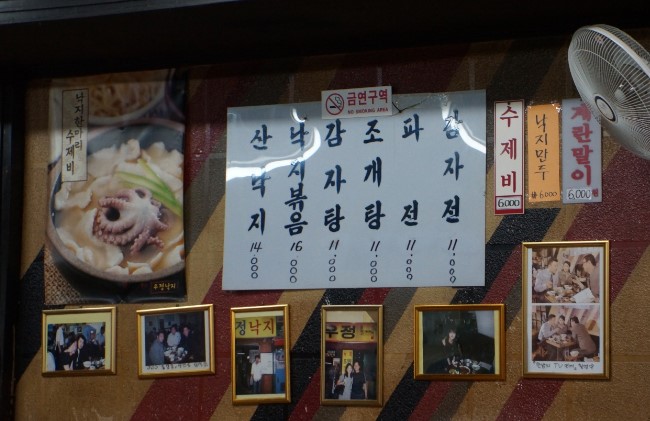 낙지한마리
수제비
구정낙지
금연구역
NO SMOKING AREA
산낙지 14,000
낙지볶음 16,000
감자탕 11,000
조개탕 11,000
파전 11,000
감자전 11,000
수제비 6,000
낙지만두 6,000
계란말이 6,000
정낙지
구정낙